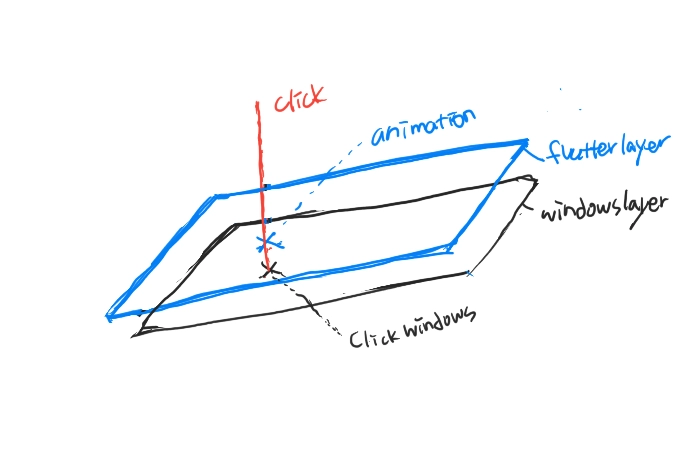 click
animation
flutterlayer
windowslayer
Click windows